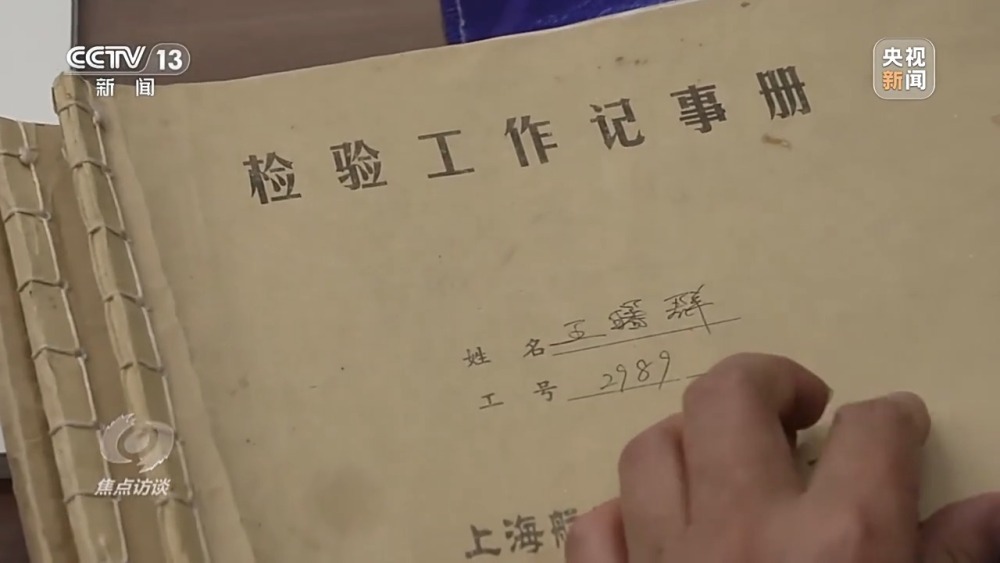 CCTV 13
新闻
央视
新闻
检验工作记事册
姓名 王曙群
工号 2989
上海航
焦点访谈